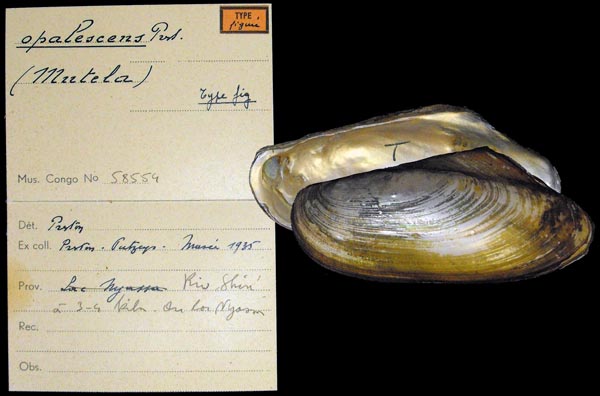 TYPE
figuré
opalescens Prst.
(Mutela)
Type fig
Mus. Congo No 58554
T
Dét. Preston
Ex coll. Preston - Putzeys - Musée 1935
Prov. Lac Nyassa Riv Shiré
à 3-4 kilo. du lac Nyassa
Rec.
Obs.